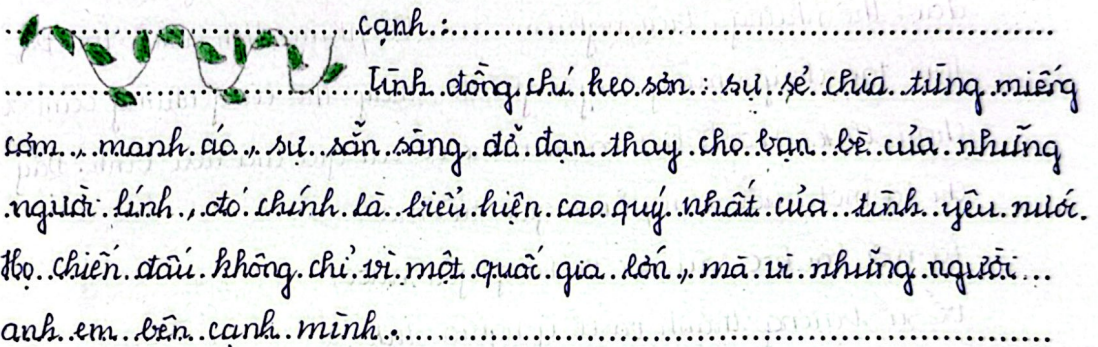 cạnh :
Tình đồng chí keo sơn : sự sẻ chia từng miếng
cơm , manh áo , sự sẵn sàng đỡ đạn thay cho bạn bè của những
người lính , đó chính là biểu hiện cao quý nhất của tình yêu nước.
Họ chiến đấu không chỉ vì một quốc gia lớn , mà vì những người
anh em bên cạnh mình .